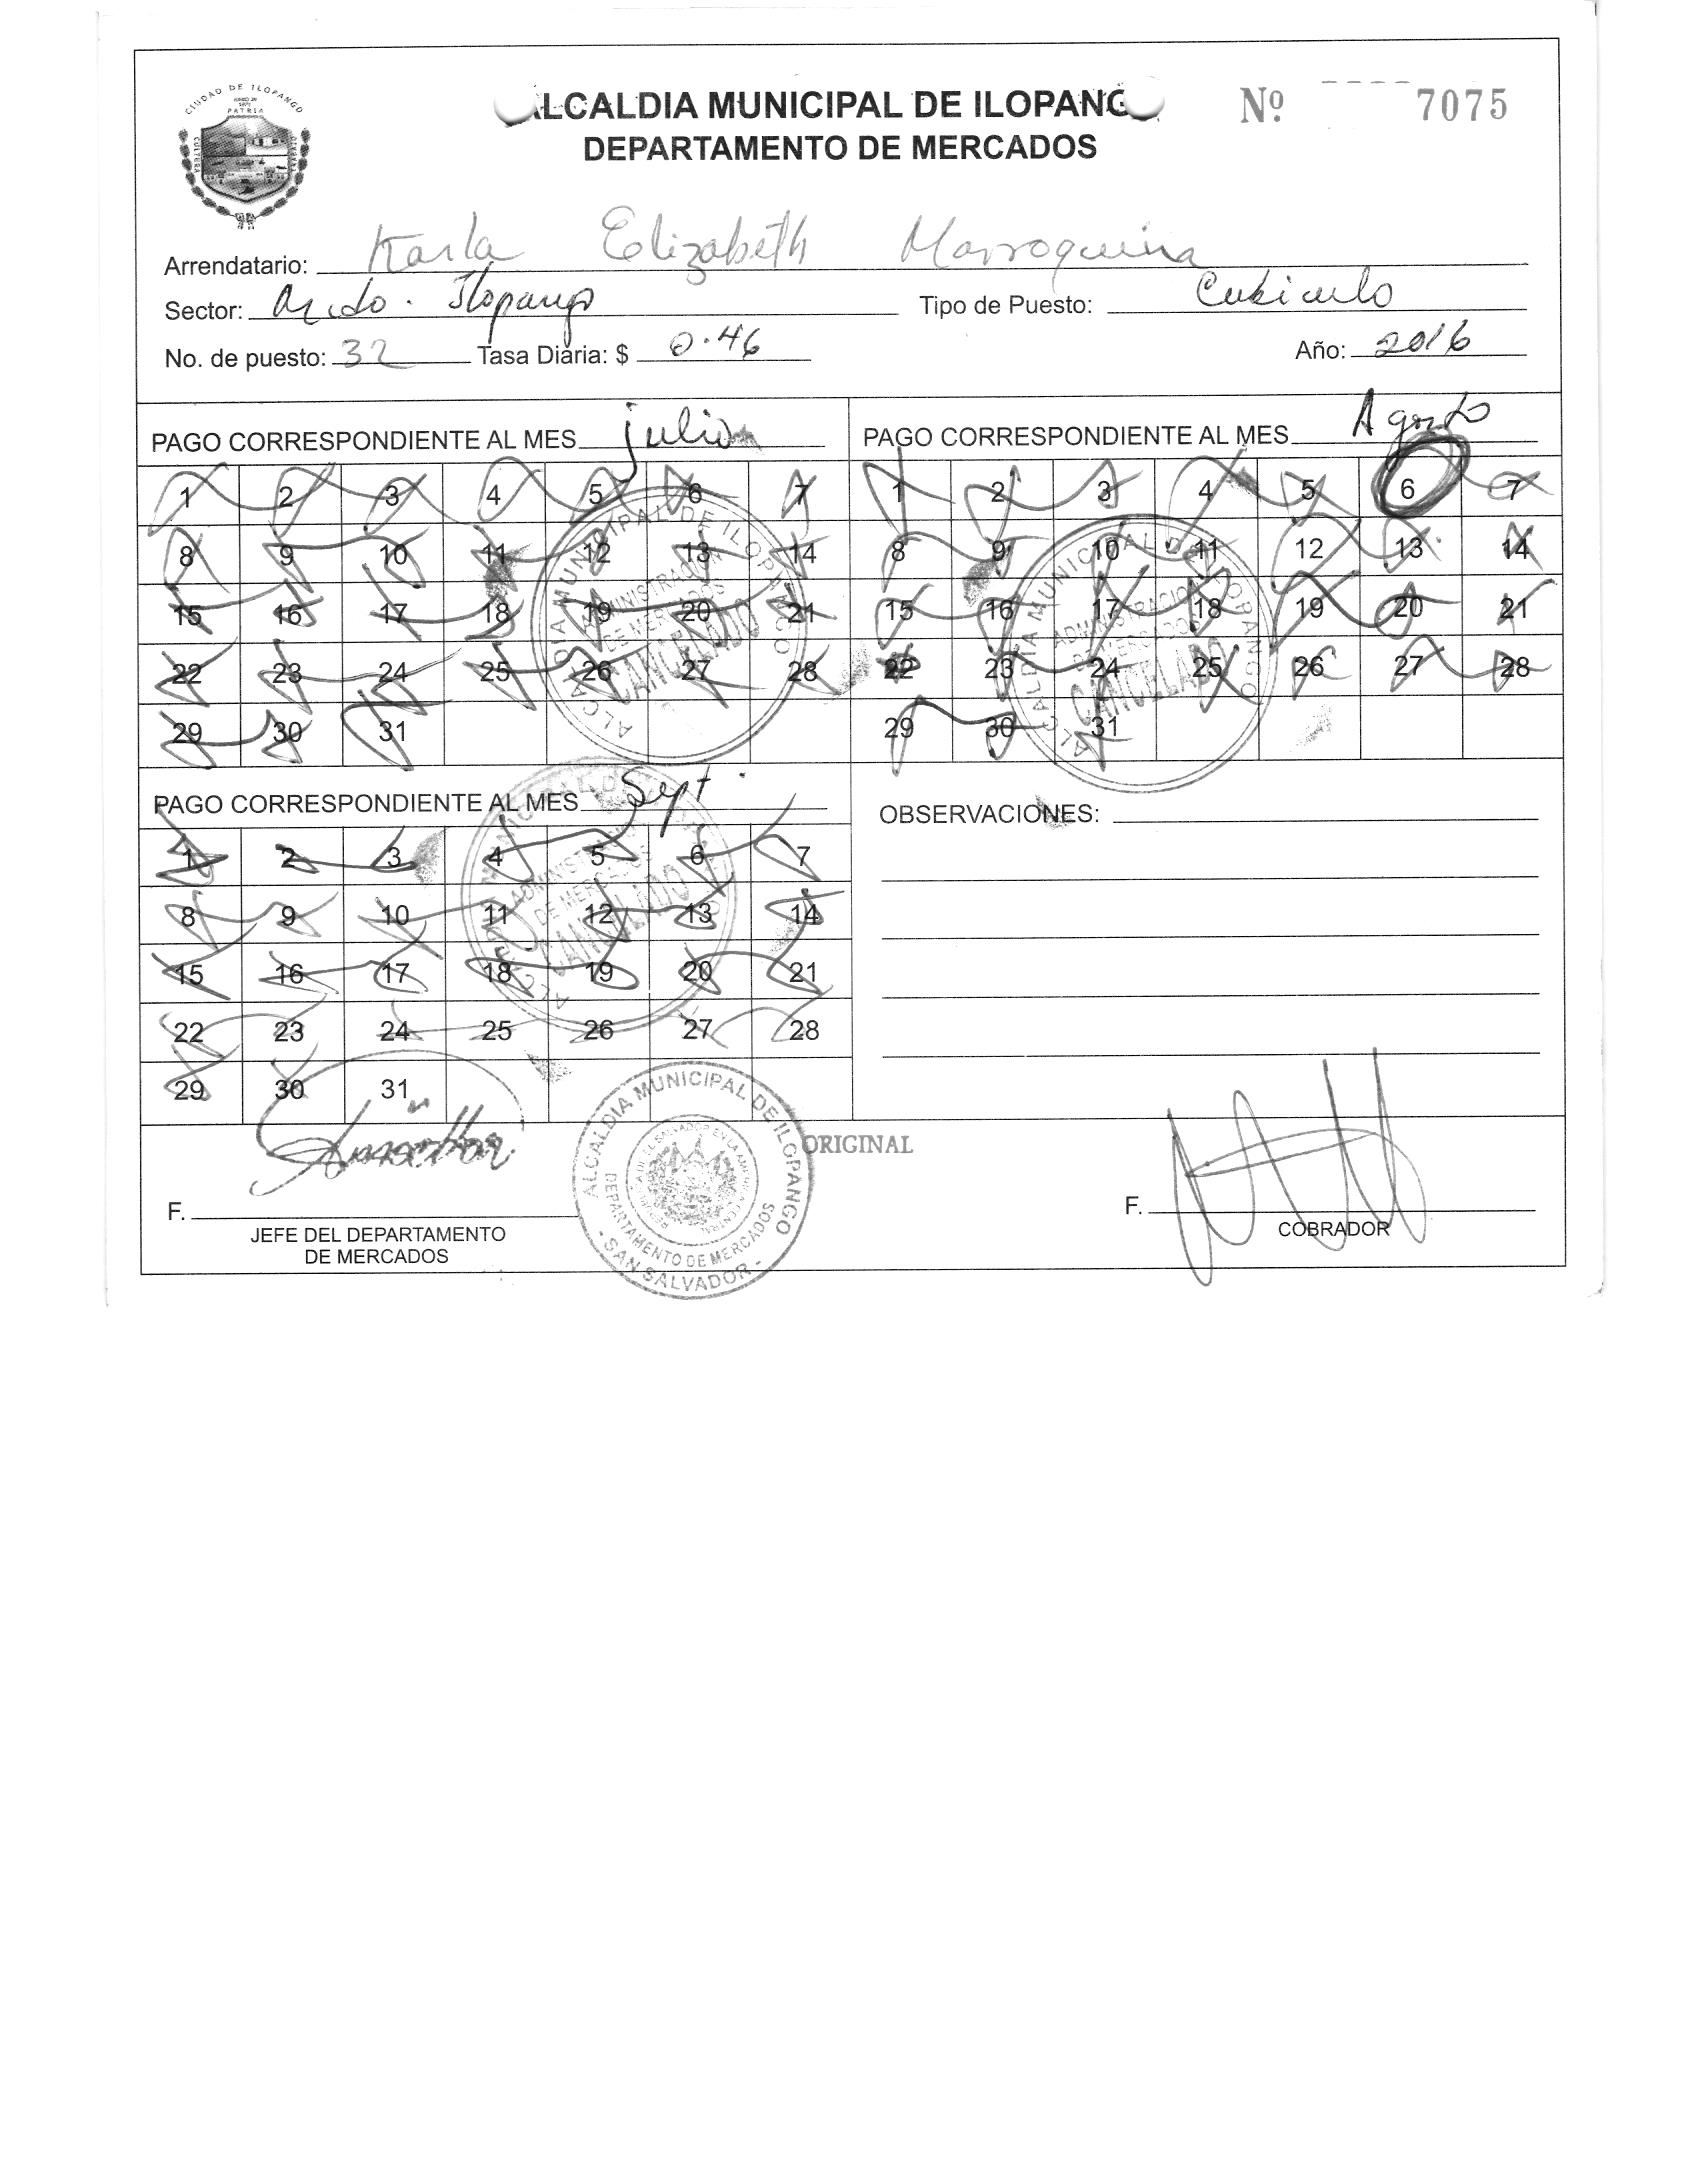 CIUDAD DE ILOPANGO
PATRIA
CULTURA
ALCALDIA MUNICIPAL DE ILOPANGO
Nº 7075
DEPARTAMENTO DE MERCADOS
Arrendatario: Karla Elizabeth Marroquina
Sector: Ilopango Tipo de Puesto: Cubiculo
No. de puesto: 32 Tasa Diaria: $ 0.46 Año: 2016
PAGO CORRESPONDIENTE AL MES julio
1 2 3 4 5 6 7
8 9 10 11 12 13 14
15 16 17 18 19 20 21
22 23 24 25 26 27 28
29 30 31
ALCALDIA MUNICIPAL DE ILOPANGO
ADMINISTRACION
DE MERCADOS
CANCELADO
PAGO CORRESPONDIENTE AL MES Agosto
1 2 3 4 5 6 7
8 9 10 11 12 13 14
15 16 17 18 19 20 21
22 23 24 25 26 27 28
29 30 31
ALCALDIA MUNICIPAL DE ILOPANGO
ADMINISTRACION
DE MERCADOS
CANCELADO
PAGO CORRESPONDIENTE AL MES Sept.
1 2 3 4 5 6 7
8 9 10 11 12 13 14
15 16 17 18 19 20 21
22 23 24 25 26 27 28
29 30 31
ALCALDIA MUNICIPAL DE ILOPANGO
ADMINISTRACION
DE MERCADOS
CANCELADO
OBSERVACIONES:
ORIGINAL
F.
JEFE DEL DEPARTAMENTO
DE MERCADOS
ALCALDIA MUNICIPAL DE ILOPANGO
DEPARTAMENTO DE MERCADOS
- SAN SALVADOR -
F.
COBRADOR